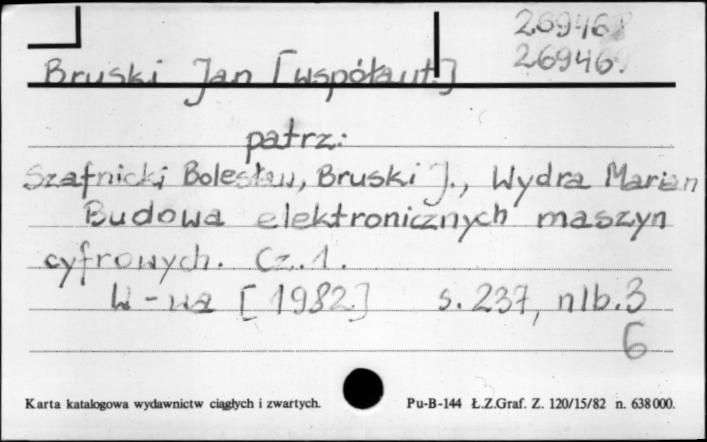 269468
26946
Bruski Jan [współaut.]
patrz:
Szafnicki Bolesław, Bruski J., Wydra Marian
Budowa elektronicznych maszyn
cyfrowych. Cz. 1.
W-wa [1982] s. 237, nlb. 3
6
Karta katalogowa wydawnictw ciągłych i zwartych. Pu-B-144 Ł.Z.Graf. Z. 120/15/82 n. 638000.